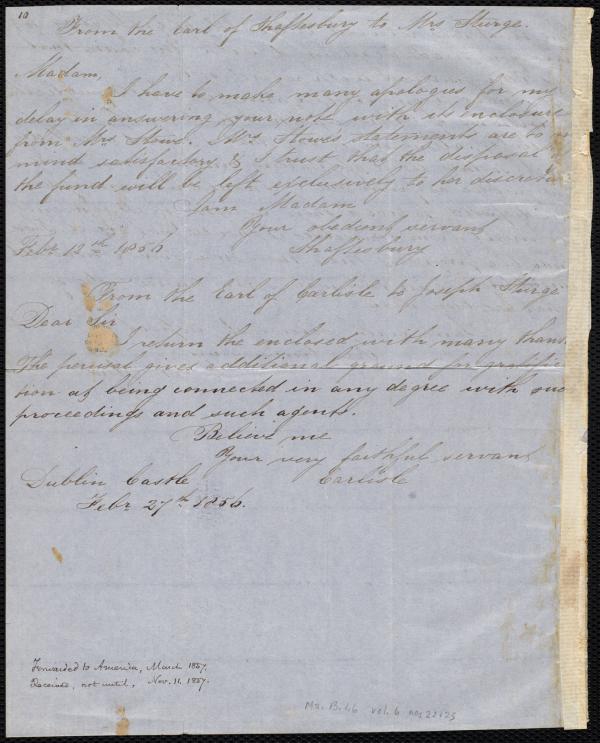 10
From the Earl of Shaftesbury to Mrs Sturge.
Madam,
I have to make many apologies for my
delay in answering your note with its inclosure
from Mrs Stowe. Mrs Stowe's statements are to
mind satisfactory & I trust that the disposal
the fund will be left exclusively to her discre
I am Madam
Your obedient servant
Febr 12th 1856 Shaftesbury
From the Earl of Carlisle to Joseph Sturge
Dear Sir
I return the enclosed with many than
The perusal gives additional ground for gratifi
tion at being connected in any degree with suc
proceedings and such agents.
Believe me
Your very faithful servant
Dublin Castle Carlisle
Febr 27th 1856.
Forwarded to America, March 1857.
Received, not until, Nov. 11. 1857.
Ms. B.1.6 vol. 6 no. 22 & 23